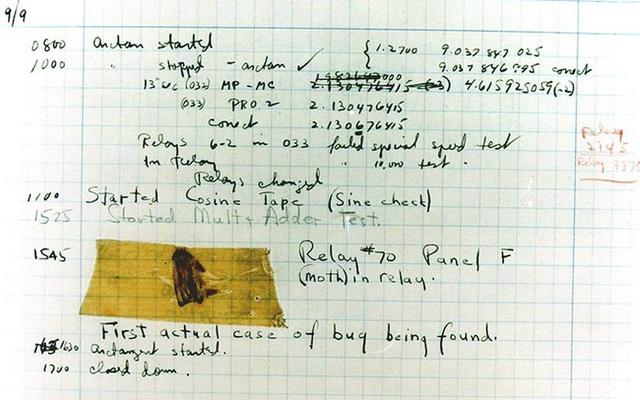 9/9
0800 arctan started { 1.2700 9.037 847 025
1000 " stopped - arctan ✓ 9.037 846 995 correct
13"uc (032) MP - MC 2.130476415 (-3) 4.615925059(-2)
(033) PRO 2 2.130476415
correct 2.130676415
Relays 6-2 in 033 failed special speed test
In Relay " 10,000 test.
Relays changed
Relay
2145
Relay 3370
1100 Started Cosine Tape (Sine check)
1525 Started Mult+Adder Test.
1545 Relay #70 Panel F
(moth) in relay.
First actual case of bug being found.
1630 arctangent started.
1700 closed down.